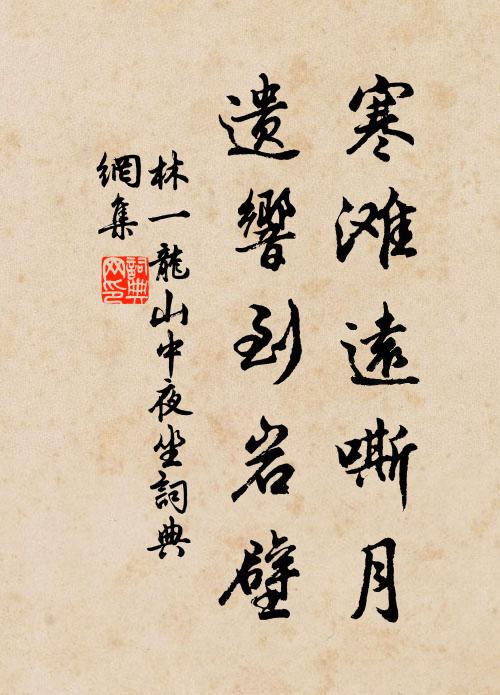 寒滩遠嘶月
遗響到岩壁
林一龍山中夜坐詞典
網集
詞典
网印